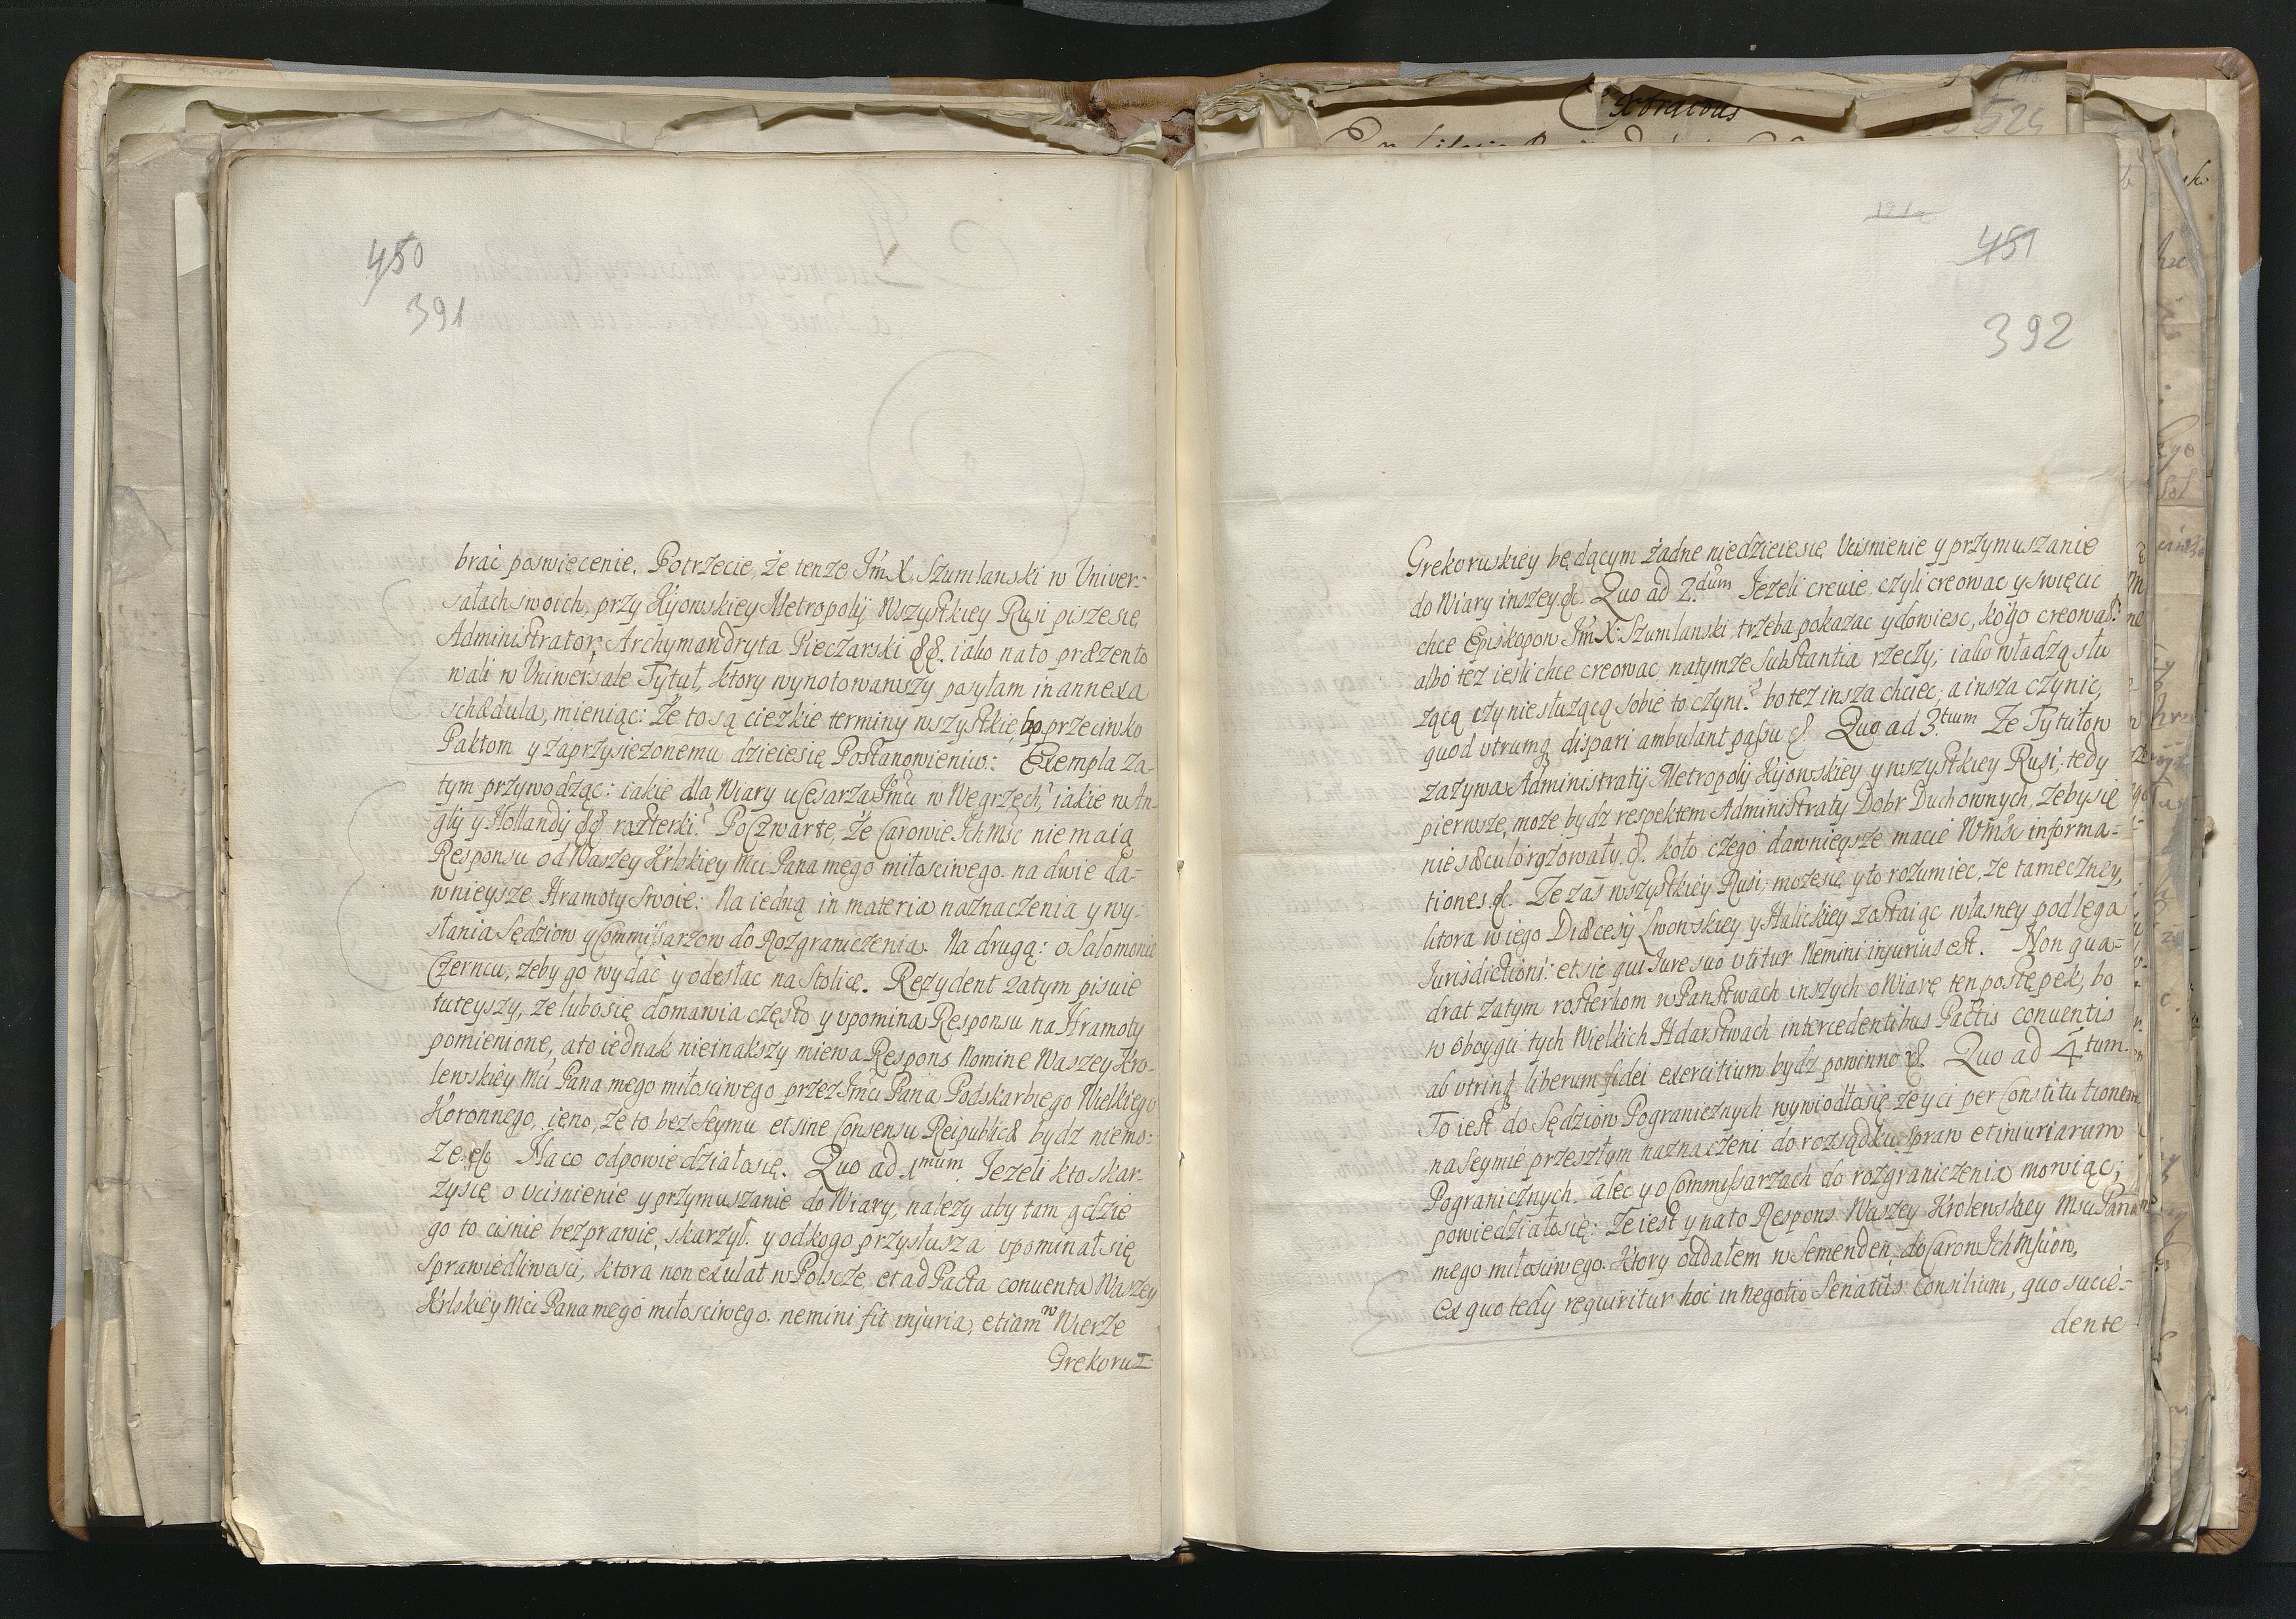 450
391
brać poswięcenie. Potrzecie, że tenze Jm̃X. Szumlanski w Univer-
sałach swoich, przy Kijowskiey Metropolij Wszystkiey Rusi piszesię
Administrator, Archymandryta Pieczarski &&. iako na to præzento
wali w Uniwersale Tytuł, ktory wynotowawszy posyłam in annexa
schædula, mieniąc: Że to są cieżkie terminy wszystkie, bo przeciwko
Paktom y zaprzysiezonemu dzieiesię Postanowieniu: Exempla za-
tym przywodząc: iakie dla Wiary u Cesarza Jm̃ci w Węgrzech, iakie w An-
glij y Hollandij && rozterki? Poczwarte, Że Carowie Ich Mśc nie maią
Responsu od Waszey Krlskiey Mci Pana mego miłosciwego. na dwie da-
wnieysze Hramoty Swoie: Na iedną in materia naznaczenia y wy-
słania Sędziow y Commissarzow do Rozgraniczenia. Na drugą: o Salomonie
Czerncu, żeby go wydać y odesłac na Stolicę. Rezydent zatym pisuie
tuteyszy, że lubo się domawia często y upomina Responsu na Hramoty
pomienione, a to iednak nieinakszy miewa Respons Nomine Waszey Kro-
lewskiey Mci Pana mego miłosciwego przez Jm̃ci Pana Podskarbiego Wielkiego
Koronnego, ieno, że to bez Seymu et sine Consensu Reipublicæ bydz niemo-
że. &. Na co odpowiedziałosię. Quo ad 1mum. Jezeli kto skar-
żysię o ucisnienie y przymuszanie do Wiary, nalezy aby tam gdzie
go to cisnie bezprawie, skarzył. y odkogo przysłusza upominał się
Sprawiedliwosci, ktora non exulat w Polscze, et ad Pacta conventa Waszey
Krlskiey Mci Pana mego miłosciwego. nemini fit injuria, etiam w Wierze
Grekorus-
451
392
Grekoruskiey będącym żadne niedzieiesię Ucisnienie y przymuszanie
do Wiary inszey &. Quo ad 2.dum Jezeli creuie, czyli creowac y swięcic
chce Episkopow Jm̃X: Szumlanski, trzeba pokazac y dowiesc, kogo creował?
albo tez iesli chce creowac, na tymze Substantia rzeczy; iako władzą słu
żącą czy niesłużącą sobie to czyni? bo tez insza chciec, a insza czynic,
quod utrumq dispari ambulant passu &. Quo ad 3.tium Ze Tytułow
zażywa Administratij Metropolij Kijowskiey y wszystkiey Rusi, tedy
pierwsze, moze bydz respektem Administraty Dobr Duchownych, żebysię
nie sæcularyzowały. &. koło czego dawnieysze macie Wm̃śc informa-
tiones. &. Ze zas wszystkiey Rusi, mozesię y to rozumiec, że tameczney,
ktora w iego Diæcesij Lwowskiey y Halickiey zostaiąc własney podlega
Jurisdictioni: et sic qui Jure suo utitur Nemini injurius est. Non qua-
drat zatym rosterkom w Panstwach inszych o Wiarę ten postępek, bo
w oboygu tych Wielkich Hdarstwach intercedentibus Pactis conventis
ab utrinq liberum fidei exercitium bydz powinno &. Quo ad 4tum.
To iest do Sędziow Pogranicznych wywiodłosię że y ci per Constitutionem
na Seymie przeszłym naznaczeni do rozsądku Spraw et iniuriarum
Pogranicznych. alec y o Commissarzach do rozgraniczenia mowiąc;
powiedziałosię: Ze iest y na to Respons Waszey Krolewskiey Msci Pana
mego miłosciwego. Ktory oddałem w Semenden, do Carow Ich Msciow,
Ex quo tedy requiritur hoc in negotio Senatus Consilium, quo succe-
dente